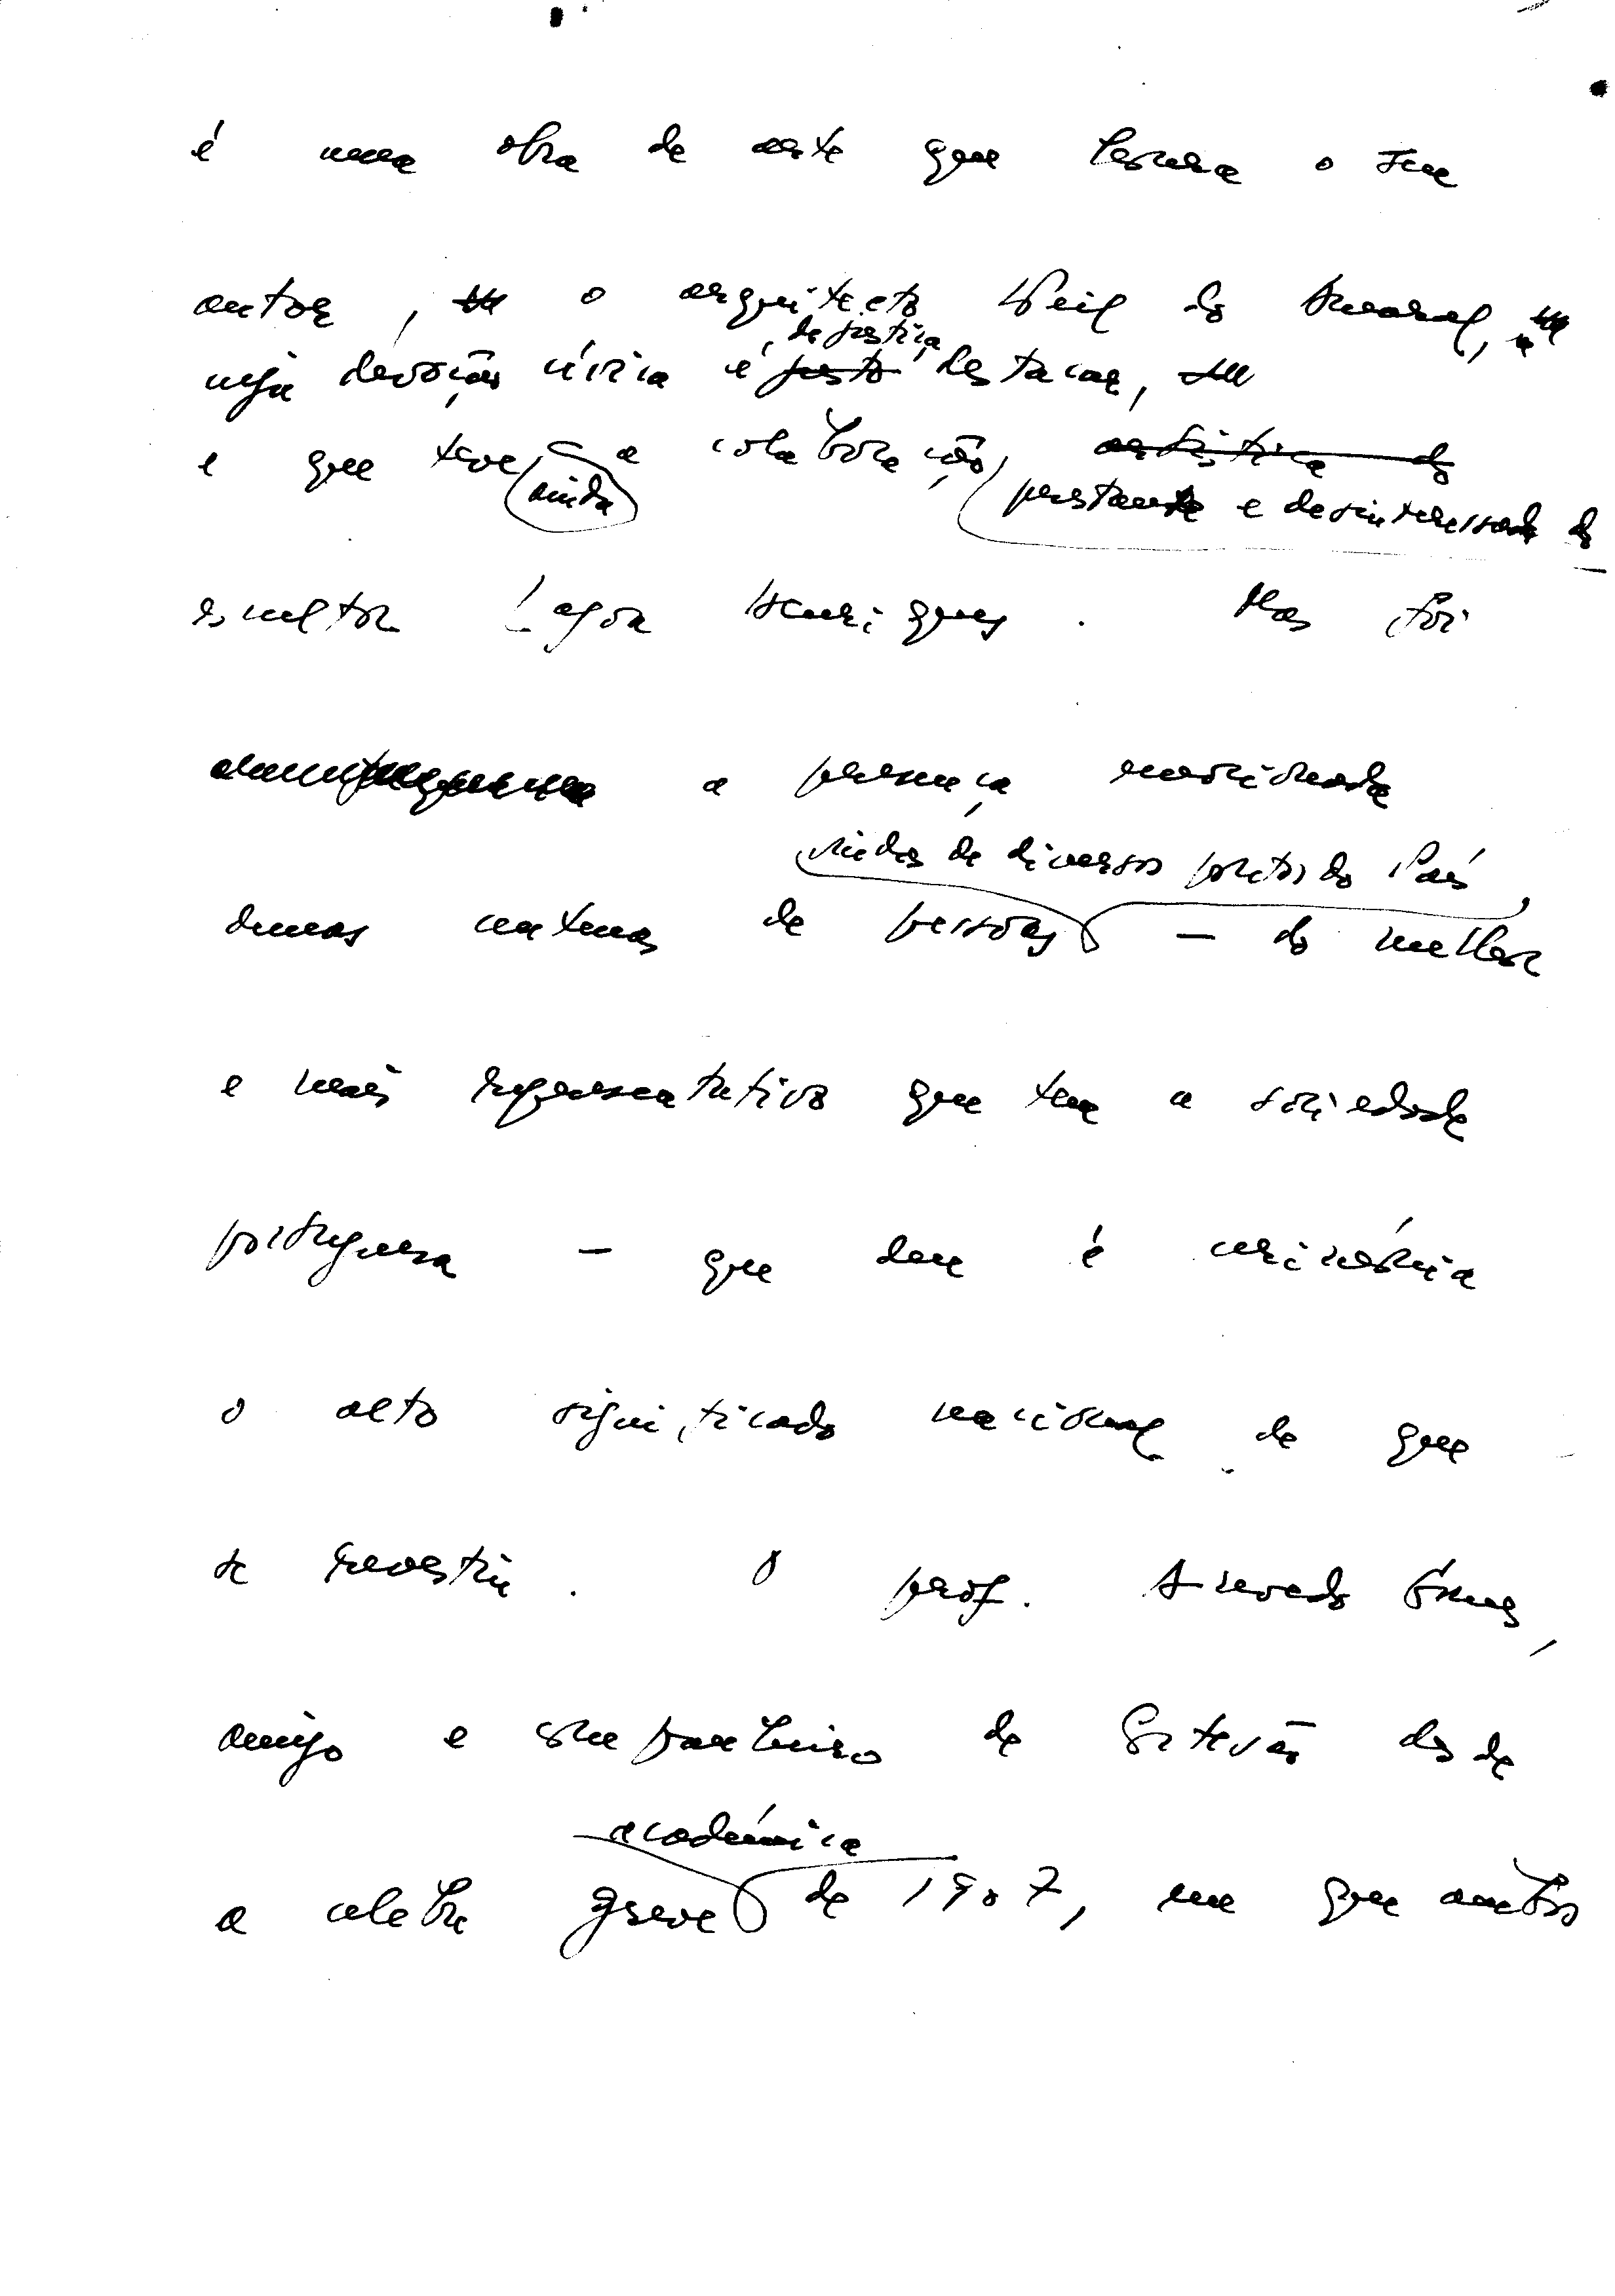 é uma obra de arte que honra o seu
autor, o arquitecto Keil do Amaral,
cuja devoção cívica é, de justiça, justo destacar,
e que teve ainda a colaboração artística do
prestante e desinteressada do
escultor Lagoa Henriques. Mas foi
a presença emocionada
vindas de diversos pontos do País,
dumas centenas de pessoas — do melhor
e mais representativo que tem a sociedade
portuguesa — que deu à cerimónia
o alto significado nacional de que
se revestiu. O prof. Azevedo Gomes,
amigo e companheiro de Estevão desde
académica
a celebre greve de 1907, em que ambos